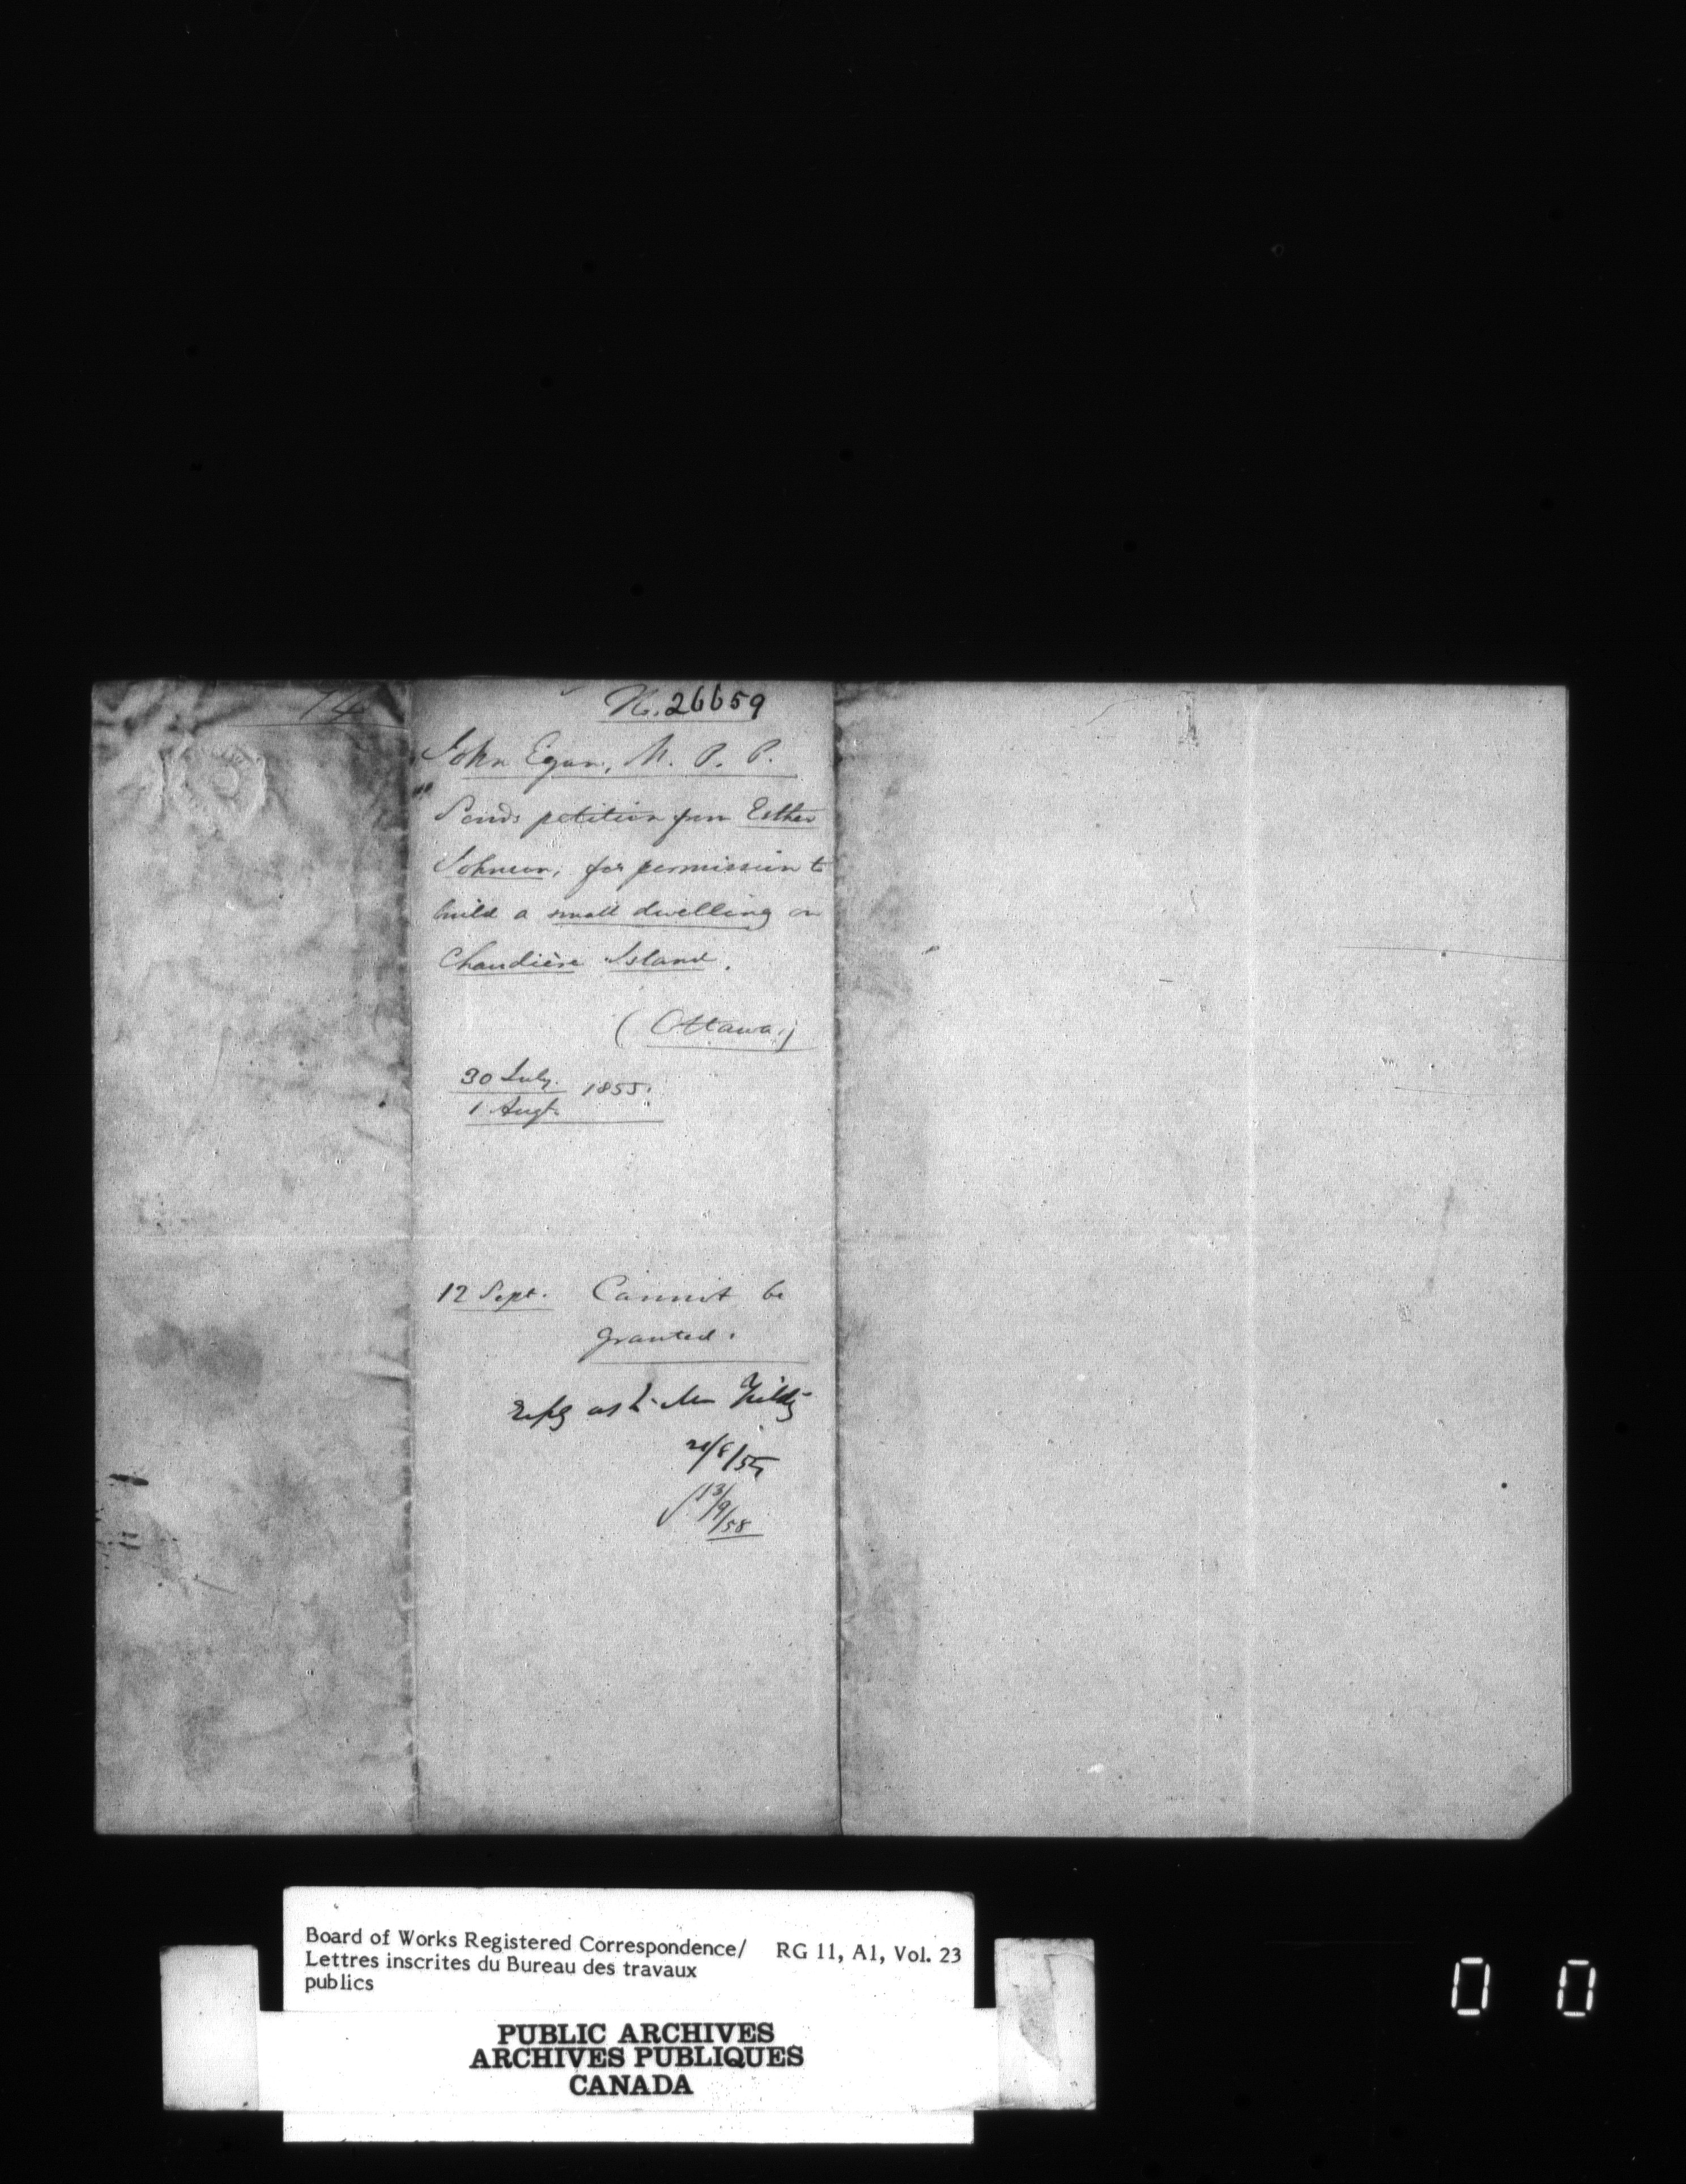 74
No. 26659
John Egan, M. P. P.
Sends petition from Esther
Johnson, for permission to
build a small dwelling on
Chaudière Island.
(Ottawa.)
30 July. 1855.
1 Augt.
12 Sept. Cannot be
granted.
as to Mr
/8/55
13/9/58
Board of Works Registered Correspondence/ RG 11, A1, Vol. 23
Lettres inscrites du Bureau des travaux
publics
PUBLIC ARCHIVES
ARCHIVES PUBLIQUES
CANADA
0 0